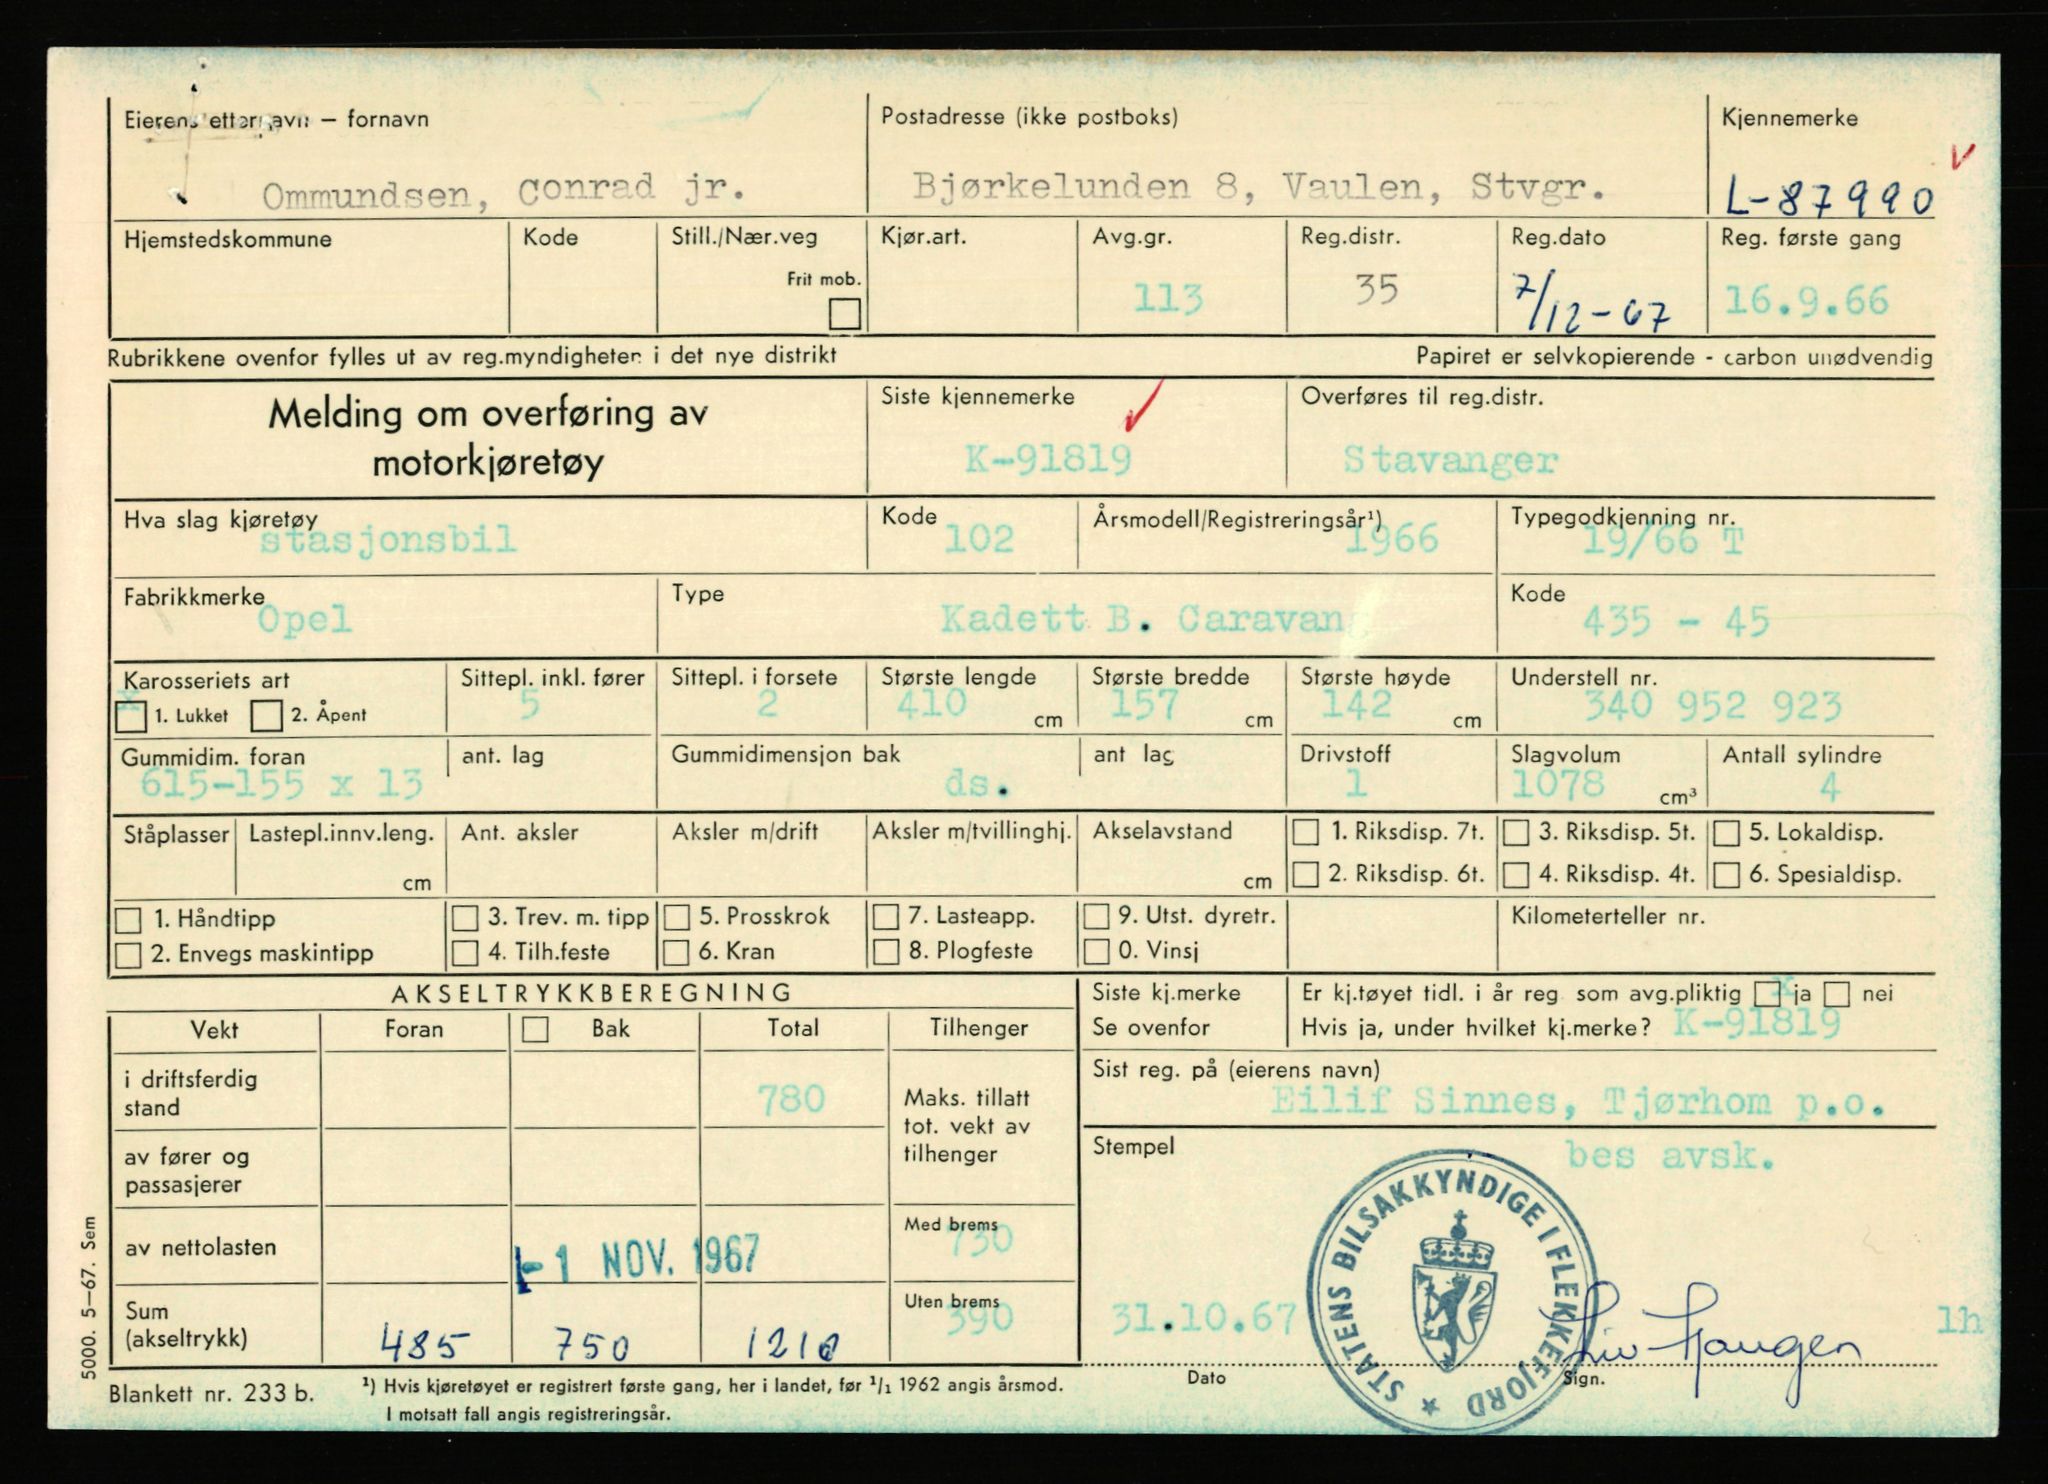 Eierens etternavn – fornavn
Ommundsen, Conrad jr.
Postadresse (ikke postboks)
Bjørkelunden 8, Vaulen, Stvgr.
Kjennemerke
L-87990
Hjemstedskommune
Kode
Still./Nær.veg
Frit mob.
Kjør.art.
Avg.gr.
113
Reg.distr.
35
Reg.dato
7/12-67
Reg. første gang
16.9.66
Rubrikkene ovenfor fylles ut av reg.myndigheten i det nye distrikt
Papiret er selvkopierende - carbon unødvendig
Melding om overføring av
motorkjøretøy
Siste kjennemerke
K-91819
Overføres til reg.distr.
Stavanger
Hva slag kjøretøy
stasjonsbil
Kode
102
Årsmodell/Registreringsår¹)
1966
Typegodkjenning nr.
19/66 T
Fabrikkmerke
Opel
Type
Kadett B. Caravan
Kode
435 - 45
Karosseriets art
x
1. Lukket 2. Åpent
Sittepl. inkl. fører
5
Sittepl. i forsete
2
Største lengde
410 cm
Største bredde
157 cm
Største høyde
142 cm
Understell nr.
340 952 923
Gummidim. foran
615-155 x 13
ant. lag
Gummidimensjon bak
ds.
ant lag
Drivstoff
1
Slagvolum
1078 cm³
Antall sylindre
4
Ståplasser
Lastepl.innv.leng.
cm
Ant. aksler
Aksler m/drift
Aksler m/tvillinghj.
Akselavstand
cm
1. Riksdisp. 7t. 3. Riksdisp. 5t. 5. Lokaldisp.
2. Riksdisp. 6t. 4. Riksdisp. 4t. 6. Spesialdisp.
1. Håndtipp 3. Trev. m. tipp 5. Prosskrok 7. Lasteapp. 9. Utst. dyretr.
2. Envegs maskintipp 4. Tilh.feste 6. Kran 8. Plogfeste 0. Vinsj
Kilometerteller nr.
AKSELTRYKKBEREGNING
Vekt Foran Bak Total Tilhenger
i driftsferdig
stand
780
Maks. tillatt
tot. vekt av
tilhenger
av fører og
passasjerer
av nettolasten
-1 NOV. 1967
Med brems
730
Sum
(akseltrykk)
485 750 1210
Uten brems
390
Siste kj.merke
Se ovenfor
Er kj.tøyet tidl. i år reg som avg.pliktig x ja nei
Hvis ja, under hvilket kj.merke? K-91819
Sist reg. på (eierens navn)
Eilif Sinnes, Tjørhom p.o.
Stempel
bes avsk.
STATENS BILSAKKYNDIGE I FLEKKEFJORD
31.10.67
Liv Haugen
lh
Dato
Sign.
5000. 5–67. Sem
Blankett nr. 233 b.
¹) Hvis kjøretøyet er registrert første gang, her i landet, før ¹/₁ 1962 angis årsmod.
I motsatt fall angis registreringsår.